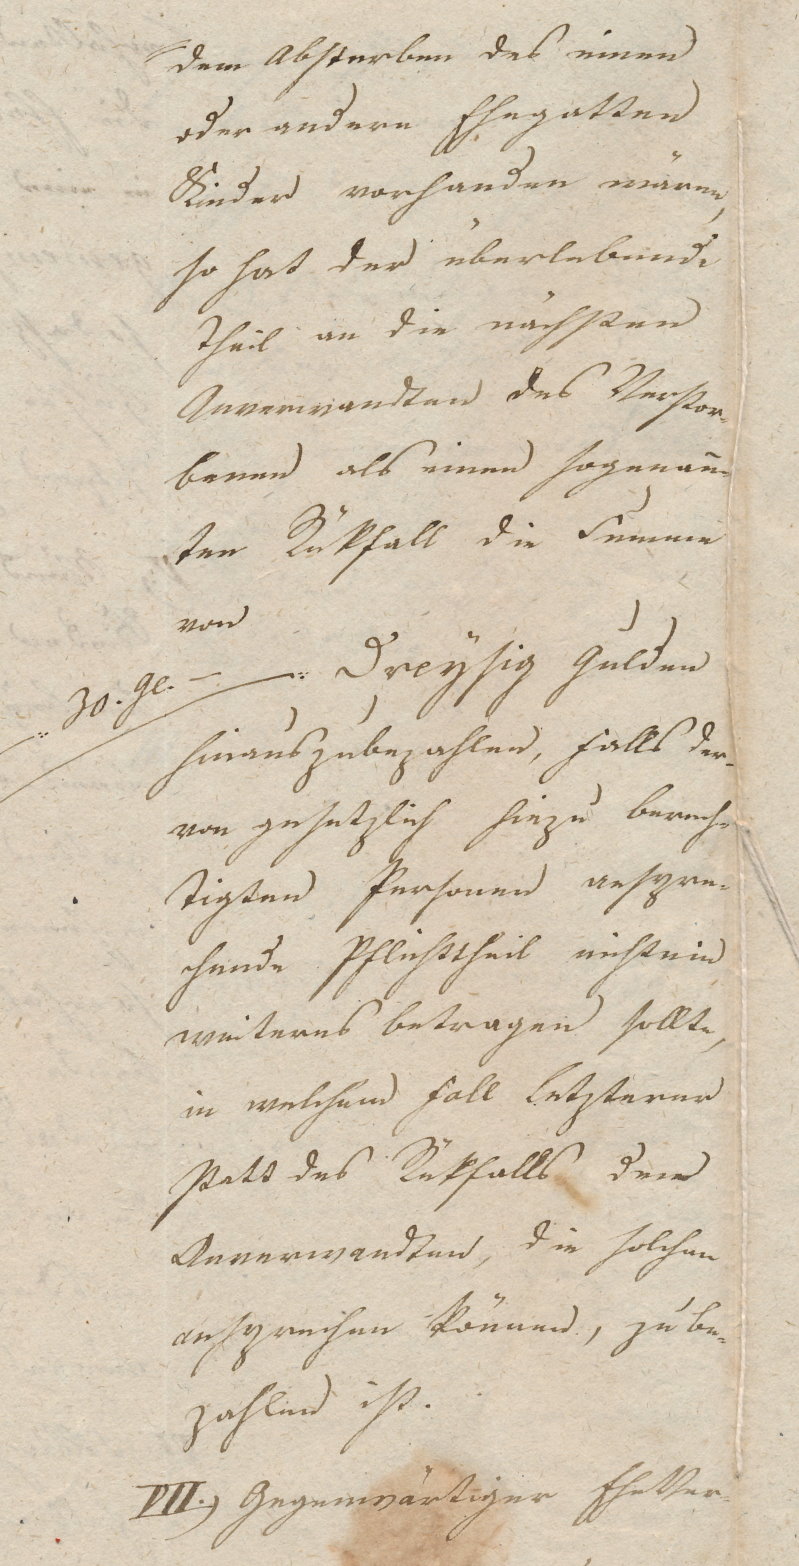 dem Absterben des einen
oder andern Ehegatten
Kinder vorhanden wären,
so hat der überlebende
Theil an die nächsten
Anverwandten des Verstor-
benen als einen sogenan̄-
ten Rükfall die Summe
von
30. Gl. — Dreÿsig Gulden
hinauszubezahlen, falls der
von gesetzlich hiezu berech-
tigten Personen anspre-
chende Pflichttheil nicht ein
weiteres betragen sollte,
in welchem Fall letzterer
statt des Rükfalls den
Anverwandten, die solchen
ansprechen können, zu be-
zahlen ist.
VII.) Gegenwärtiger EheVer-